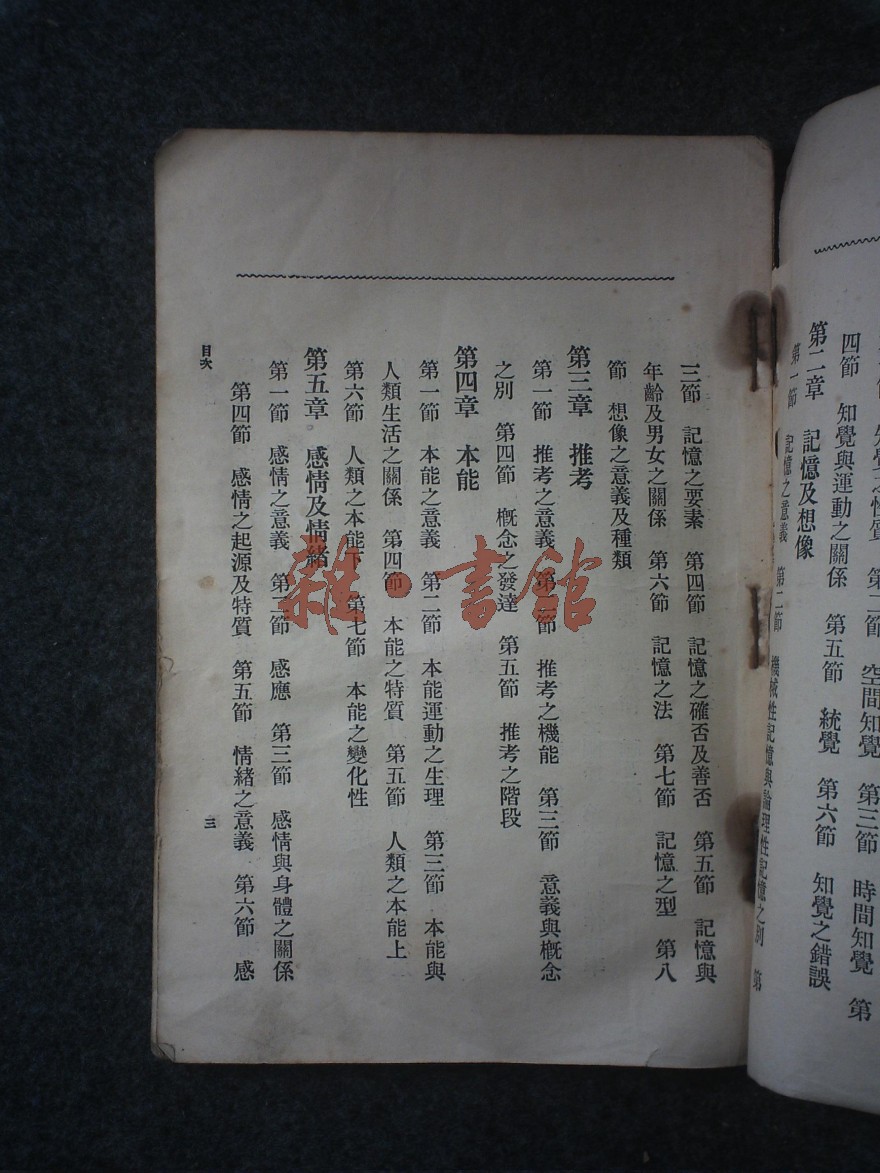 知覺之性質　第二節　空間知覺　第三節　時間知覺　第
四節　知覺與運動之關係　第五節　統覺　第六節　知覺之錯誤
第二章　記憶及想像
第一節　記憶之意義　第二節　機械性記憶與論理性記憶之別　第
三節　記憶之要素　第四節　記憶之確否及善否　第五節　記憶與
年齡及男女之關係　第六節　記憶之法　第七節　記憶之型　第八
節　想像之意義及種類
第三章　推考
第一節　推考之意義　第二節　推考之機能　第三節　意義與概念
之別　第四節　概念之發達　第五節　推考之階段
第四章　本能
第一節　本能之意義　第二節　本能運動之生理　第三節　本能與
人類生活之關係　第四節　本能之特質　第五節　人類之本能上
第六節　人類之本能下　第七節　本能之變化性
第五章　感情及情緒
第一節　感情之意義　第二節　感應　第三節　感情與身體之關係
第四節　感情之起源及特質　第五節　情緒之意義　第六節　感
目次
三
雜·書館